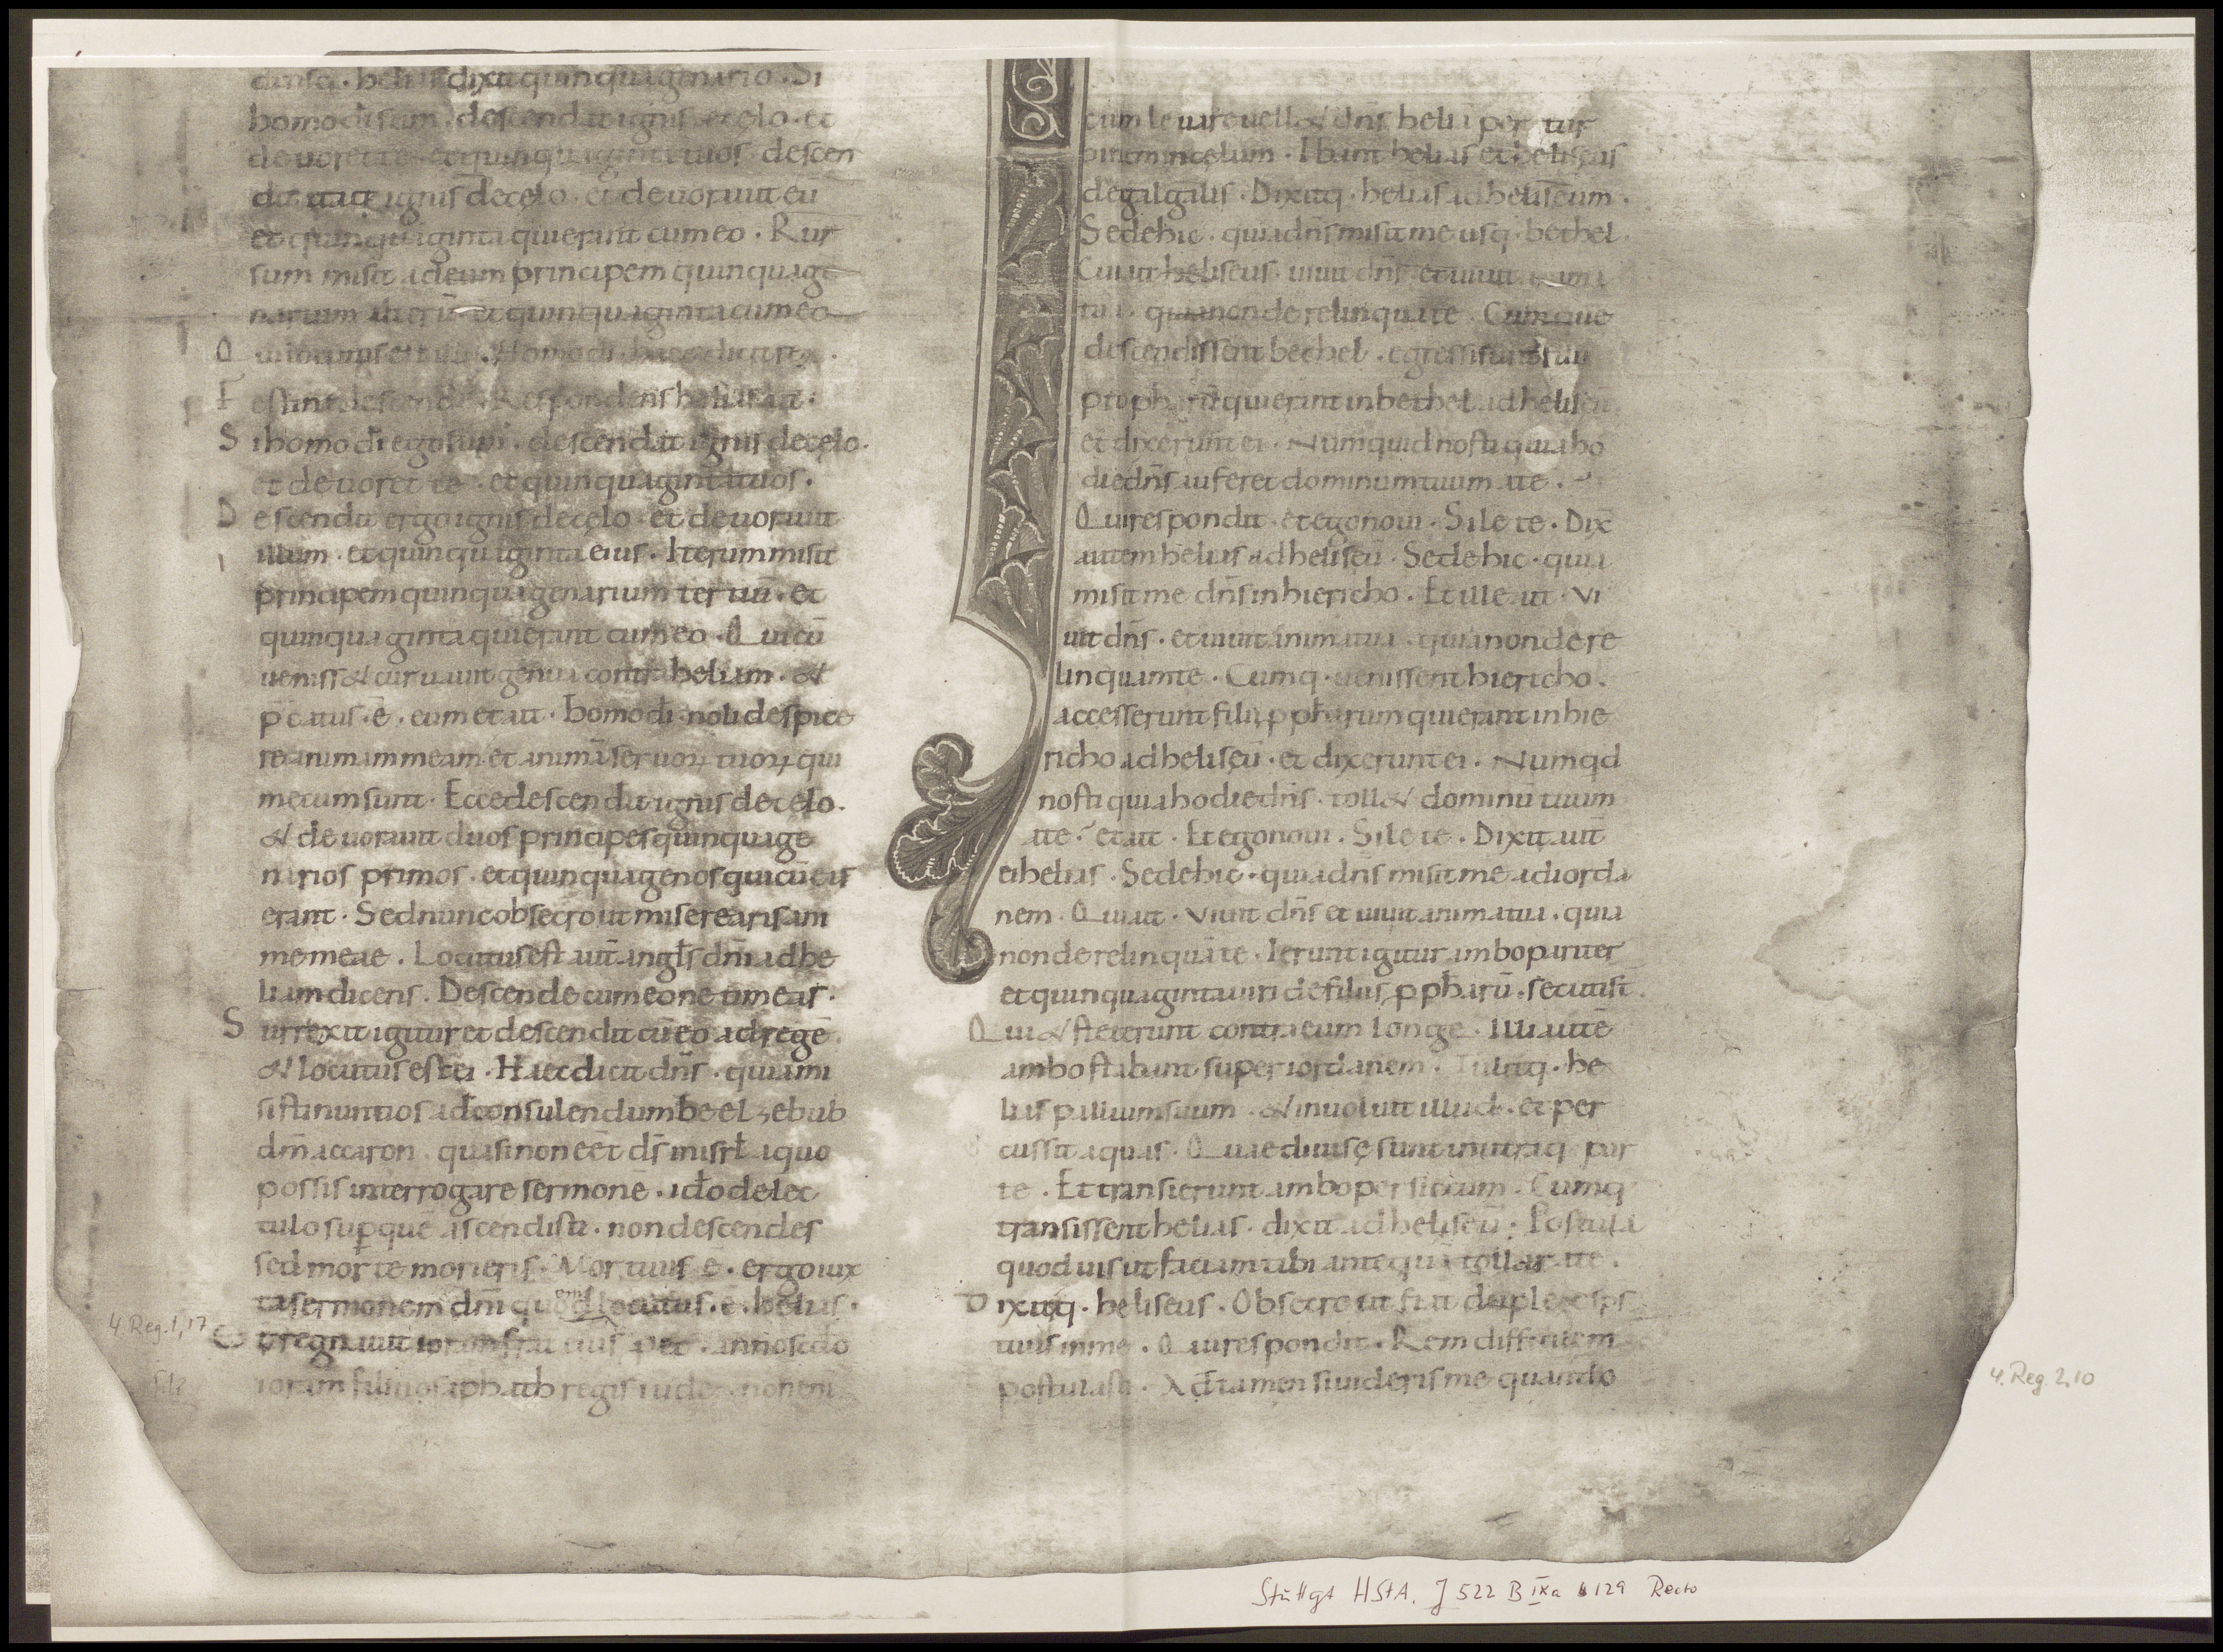 densq· helias dixit quinquagenario · Si
homo di sum · descendat ignis e celo · et
deuoret te · et quinquaginta tuos · descen
dit itaq ignis de cęlo · et deuorauit eū
et quinquaginta qui erant cum eo · Rur
sum misit ad eum principem quinquage
narium alterū · et quinquaginta cum eo
Qui locutus est illi · Homo di · haec dicit rex ·
Festina descende · Respondens helias ait ·
Si homo dī ego sum · descendat ignis de cęlo ·
et deuoret te · et quinquaginta tuos ·
Descendit ergo ignis de cęlo · et deuorauit
illum · et quinquaginta eius · Iterum misit
principem quinquagenarium tertiū · et
quinquaginta qui erant cum eo · Qui cū
ueniss& curuauit genua contra heliam · &
p̄catus · ē · eum et ait · homo dī · noli despice
re animam meam · et animā seruoꝝ tuoꝝ qui
mecum sunt · Ecce descendit ignis de cęlo ·
& deuorauit duos principes quinquage
narios primos · et quinquagenos qui cū eis
erant · Sed nunc obsecro ut miserearis ani
me meae · Locutus est aūt angl̄s dn̄i ad he
liam dicens · Descende cum eo ne timeas ·
Surrexit igitur et descendit cū eo ad regē ·
& locutus est ei · Haec dicit dn̄s · quia mi
sisti nuntios ad consulendum beelzebub
dm̄ accaron · quasi non eēt ds̄ in isrl̄ a quo
possis interrogare sermonē · ido de lec
tulo sup quē ascendisti · non descendes
sed morte morieris · Mortuus ē · ergo iux
ta sermonem dn̄i quē locutus · ē · helias ·
& regnauit ioram frat eius pro eo · anno scdo
ioram filii iosaphath regis iudę · non eni
cum leuare uell& dn̄s heliā per tur
binem in cęlum · Ibant helias et heliseus
de galgalis · Dixitq · helias ad heliseum ·
Sede hic · quia dn̄s misit me usq · bethel ·
Cui ait heliseus · uiuit dn̄s · et uiuit anima
tua · quia non derelinquā te · Cumque
descendissent bethel · egressi sunt filii
prophetarū qui erant in bethel ad heliseū
et dixerunt ei · Numquid nosti quia ho
die dn̄s auferet dominum tuum a te ·
Qui respondit · et ego noui · Silete · Dix̄
autem helias ad heliseū · Sede hic · quia
misit me dn̄s in hiericho · Et ille ait · Vi
uit dn̄s · et uiuit anima tua · quia non dere
linquam te · Cumq · uenissent hiericho ·
accesserunt filii p̱pharum qui erant in hie
richo ad heliseū · et dixerunt ei · Numqd
nosti quia hodie dn̄s · toll& dominū tuum
a te · et ait · Et ego noui · Silete · Dixit aūt
ei helias · Sede hic · quia dn̄s misit me ad iorda
nem · Qui ait · Viuit dn̄s et uiuit anima tua · quia
non derelinquā te · Ierunt igitur ambo pariter
et quinquaginta uiri de filiis p̱pharū · secuti st̄
Qui & steterunt contra eum longe · Illi autē
ambo stabant super iordanem · Tulitq · he
lias pallium suum · & inuoluit illud · et per
cussit aquas · Quae diuisę sunt in utraq par
te · Et transierunt ambo per siccum · Cumq
transissent helias · dixit ad heliseū · Postula
quod uis ut faciam tibi antequā tollar a te ·
Dixitq · heliseus · Obsecro ut fiat duplex sps
tuus in me · Qui respondit · Rem difficilem
postulasti · Adtamen si uideris me quando
4 Reg. 1,17
4. Reg. 2,10
Stuttgt HStA. J 522 B IXa 129 Recto